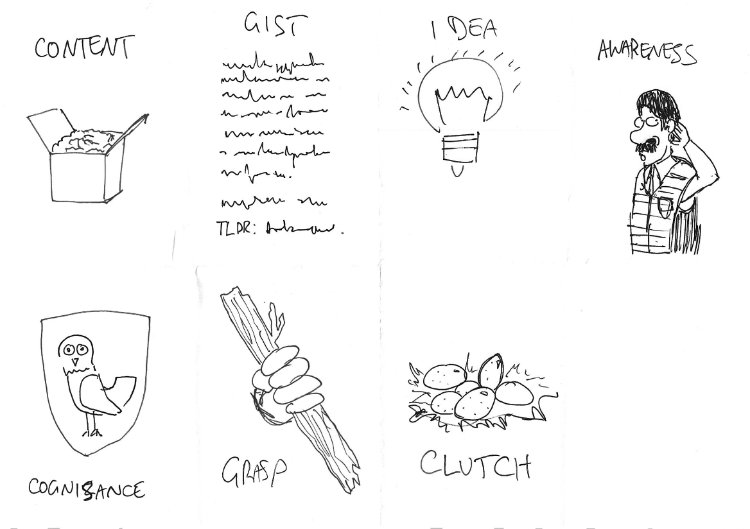 CONTENT
GIST
IDEA
AWARENESS
TLDR:
COGNISANCE
GRASP
CLUTCH